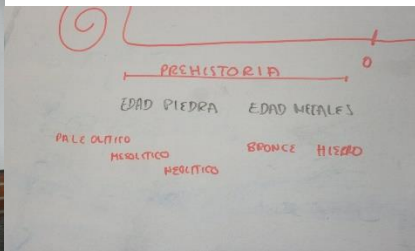 0
PREHISTORIA
EDAD PIEDRA EDAD METALES
PALEOLITICO
MESOLITICO
NEOLITICO
BRONCE HIERRO